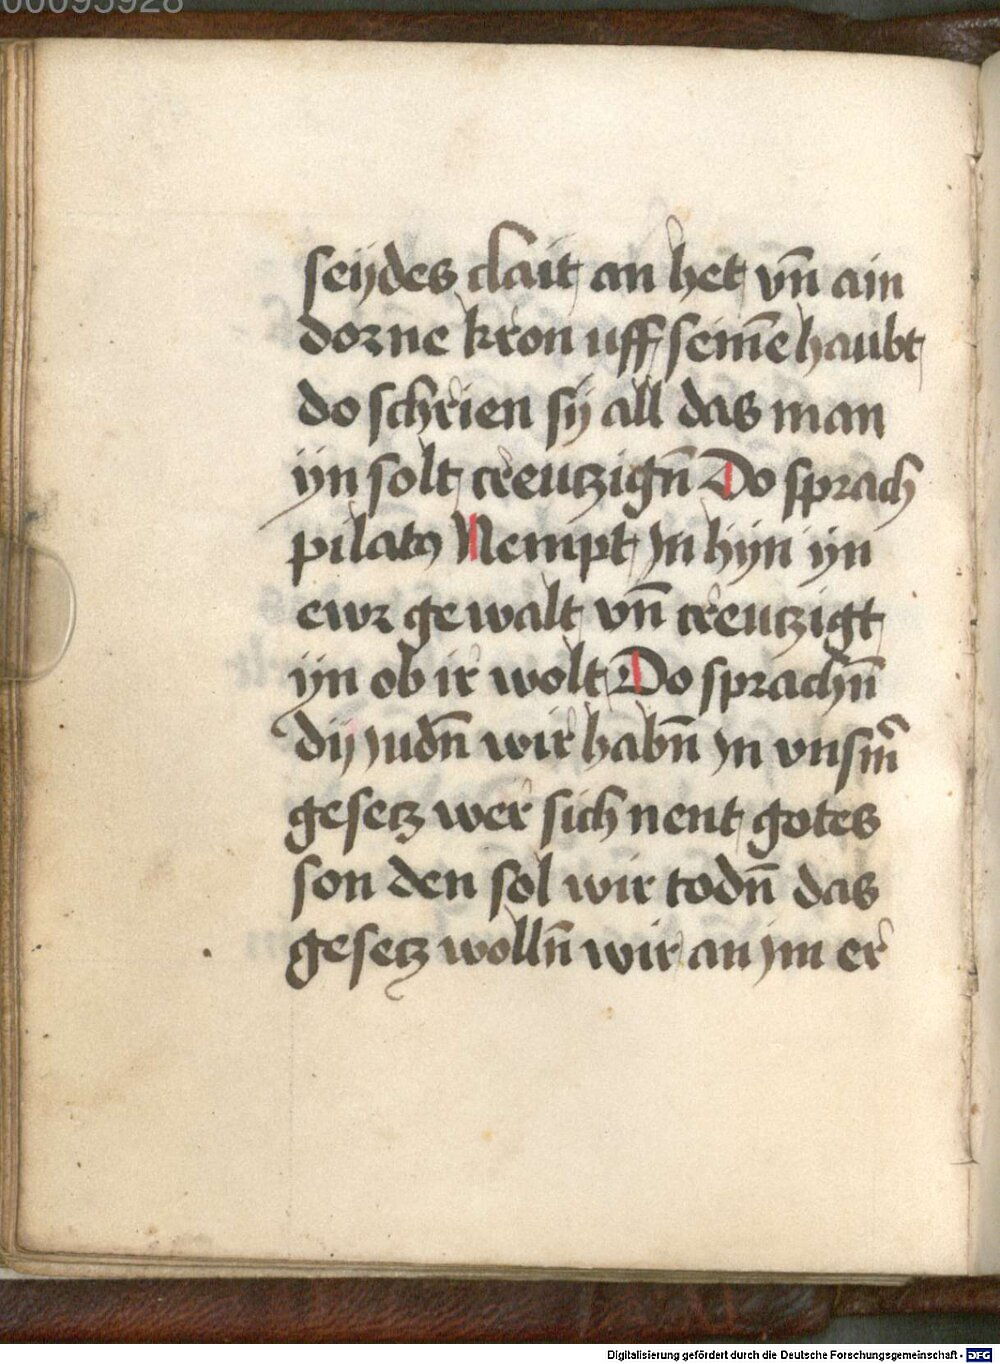 00095928
seÿdes clait an het vn̄ ain
dorne kron uff seinē haubt
do schrien sÿ all das man
ÿn solt creutzign̄ Do sprach
pilatꝯ Nempt In hÿn ÿn
ewr gewalt vn̄ creutzigt
ÿn ob ir wolt Do sprachn̄
dÿ Judn̄ wir habn̄ In vnsm̄
gesetz wer sich nent gotes
son den sol wir todn̄ das
gesetz wolln̄ wir an Im er
Digitalisierung gefördert durch die Deutsche Forschungsgemeinschaft - DFG